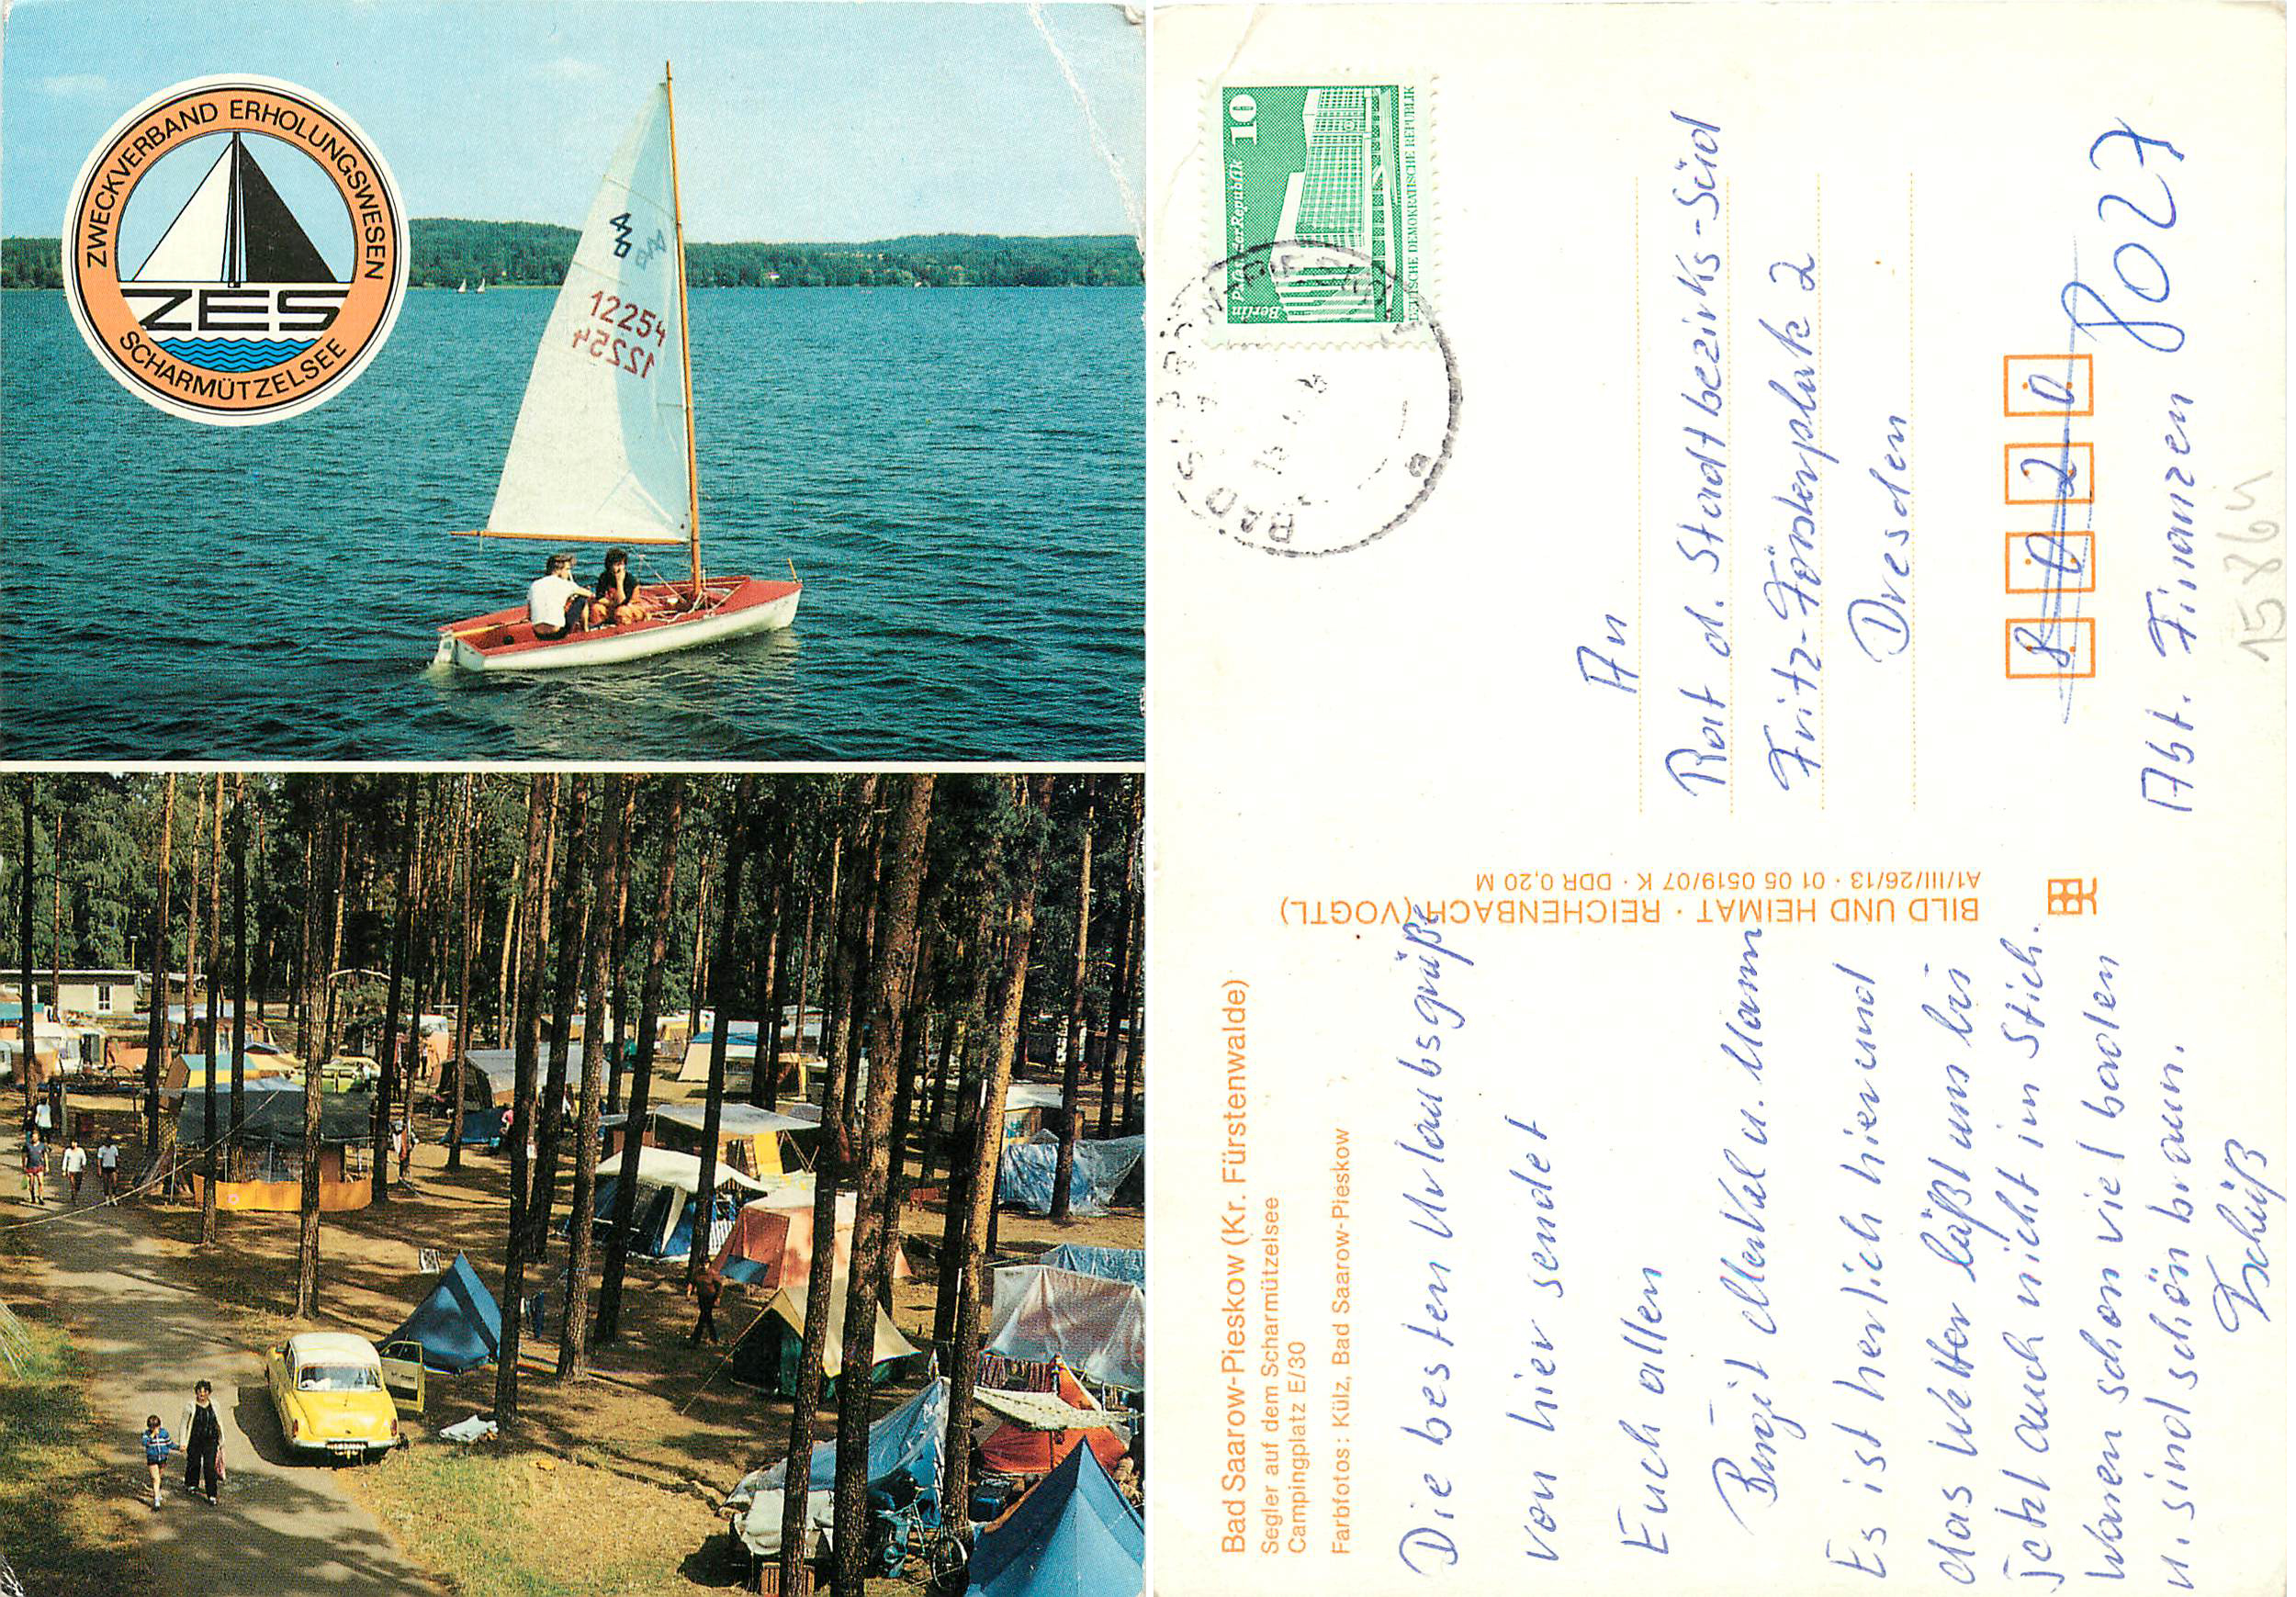 ZWECKVERBAND ERHOLUNGSWESEN
ZES
SCHARMÜTZELSEE
12254
12254
Bad Saarow-Pieskow (Kr. Fürstenwalde)
Segler auf dem Scharmützelsee
Campingplatz E/30
Farbfotos: Külz, Bad Saarow-Pieskow
Die besten Urlaubsgrüße
von hier sendet
Euch allen
u. Mann
Es ist herlich hier und
das Wetter läßt uns bis
jetzt auch nicht im Stich.
Waren schon viel baden
u. sind schön braun.
Tschüß
BILD UND HEIMAT · REICHENBACH (VOGTL)
A1/III/26/13 · 01 05 0519/07 K · DDR 0,20 M
10
Berlin Palast der Republik
DEUTSCHE DEMOKRATISCHE REPUBLIK
BAD SAAROW-PIESKOW
a
An
Rat d. Stadtbezirks-Süd
Fritz-Försterplatz 2
Dresden
8020
8027
Abt. Finanzen
15864